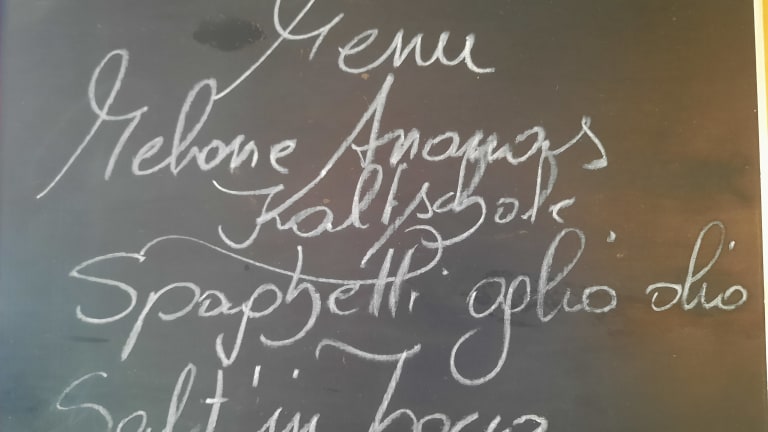 Menu
Melone Ananas
Kaltschale
Spaghetti aglio olio
Salt'in bocca